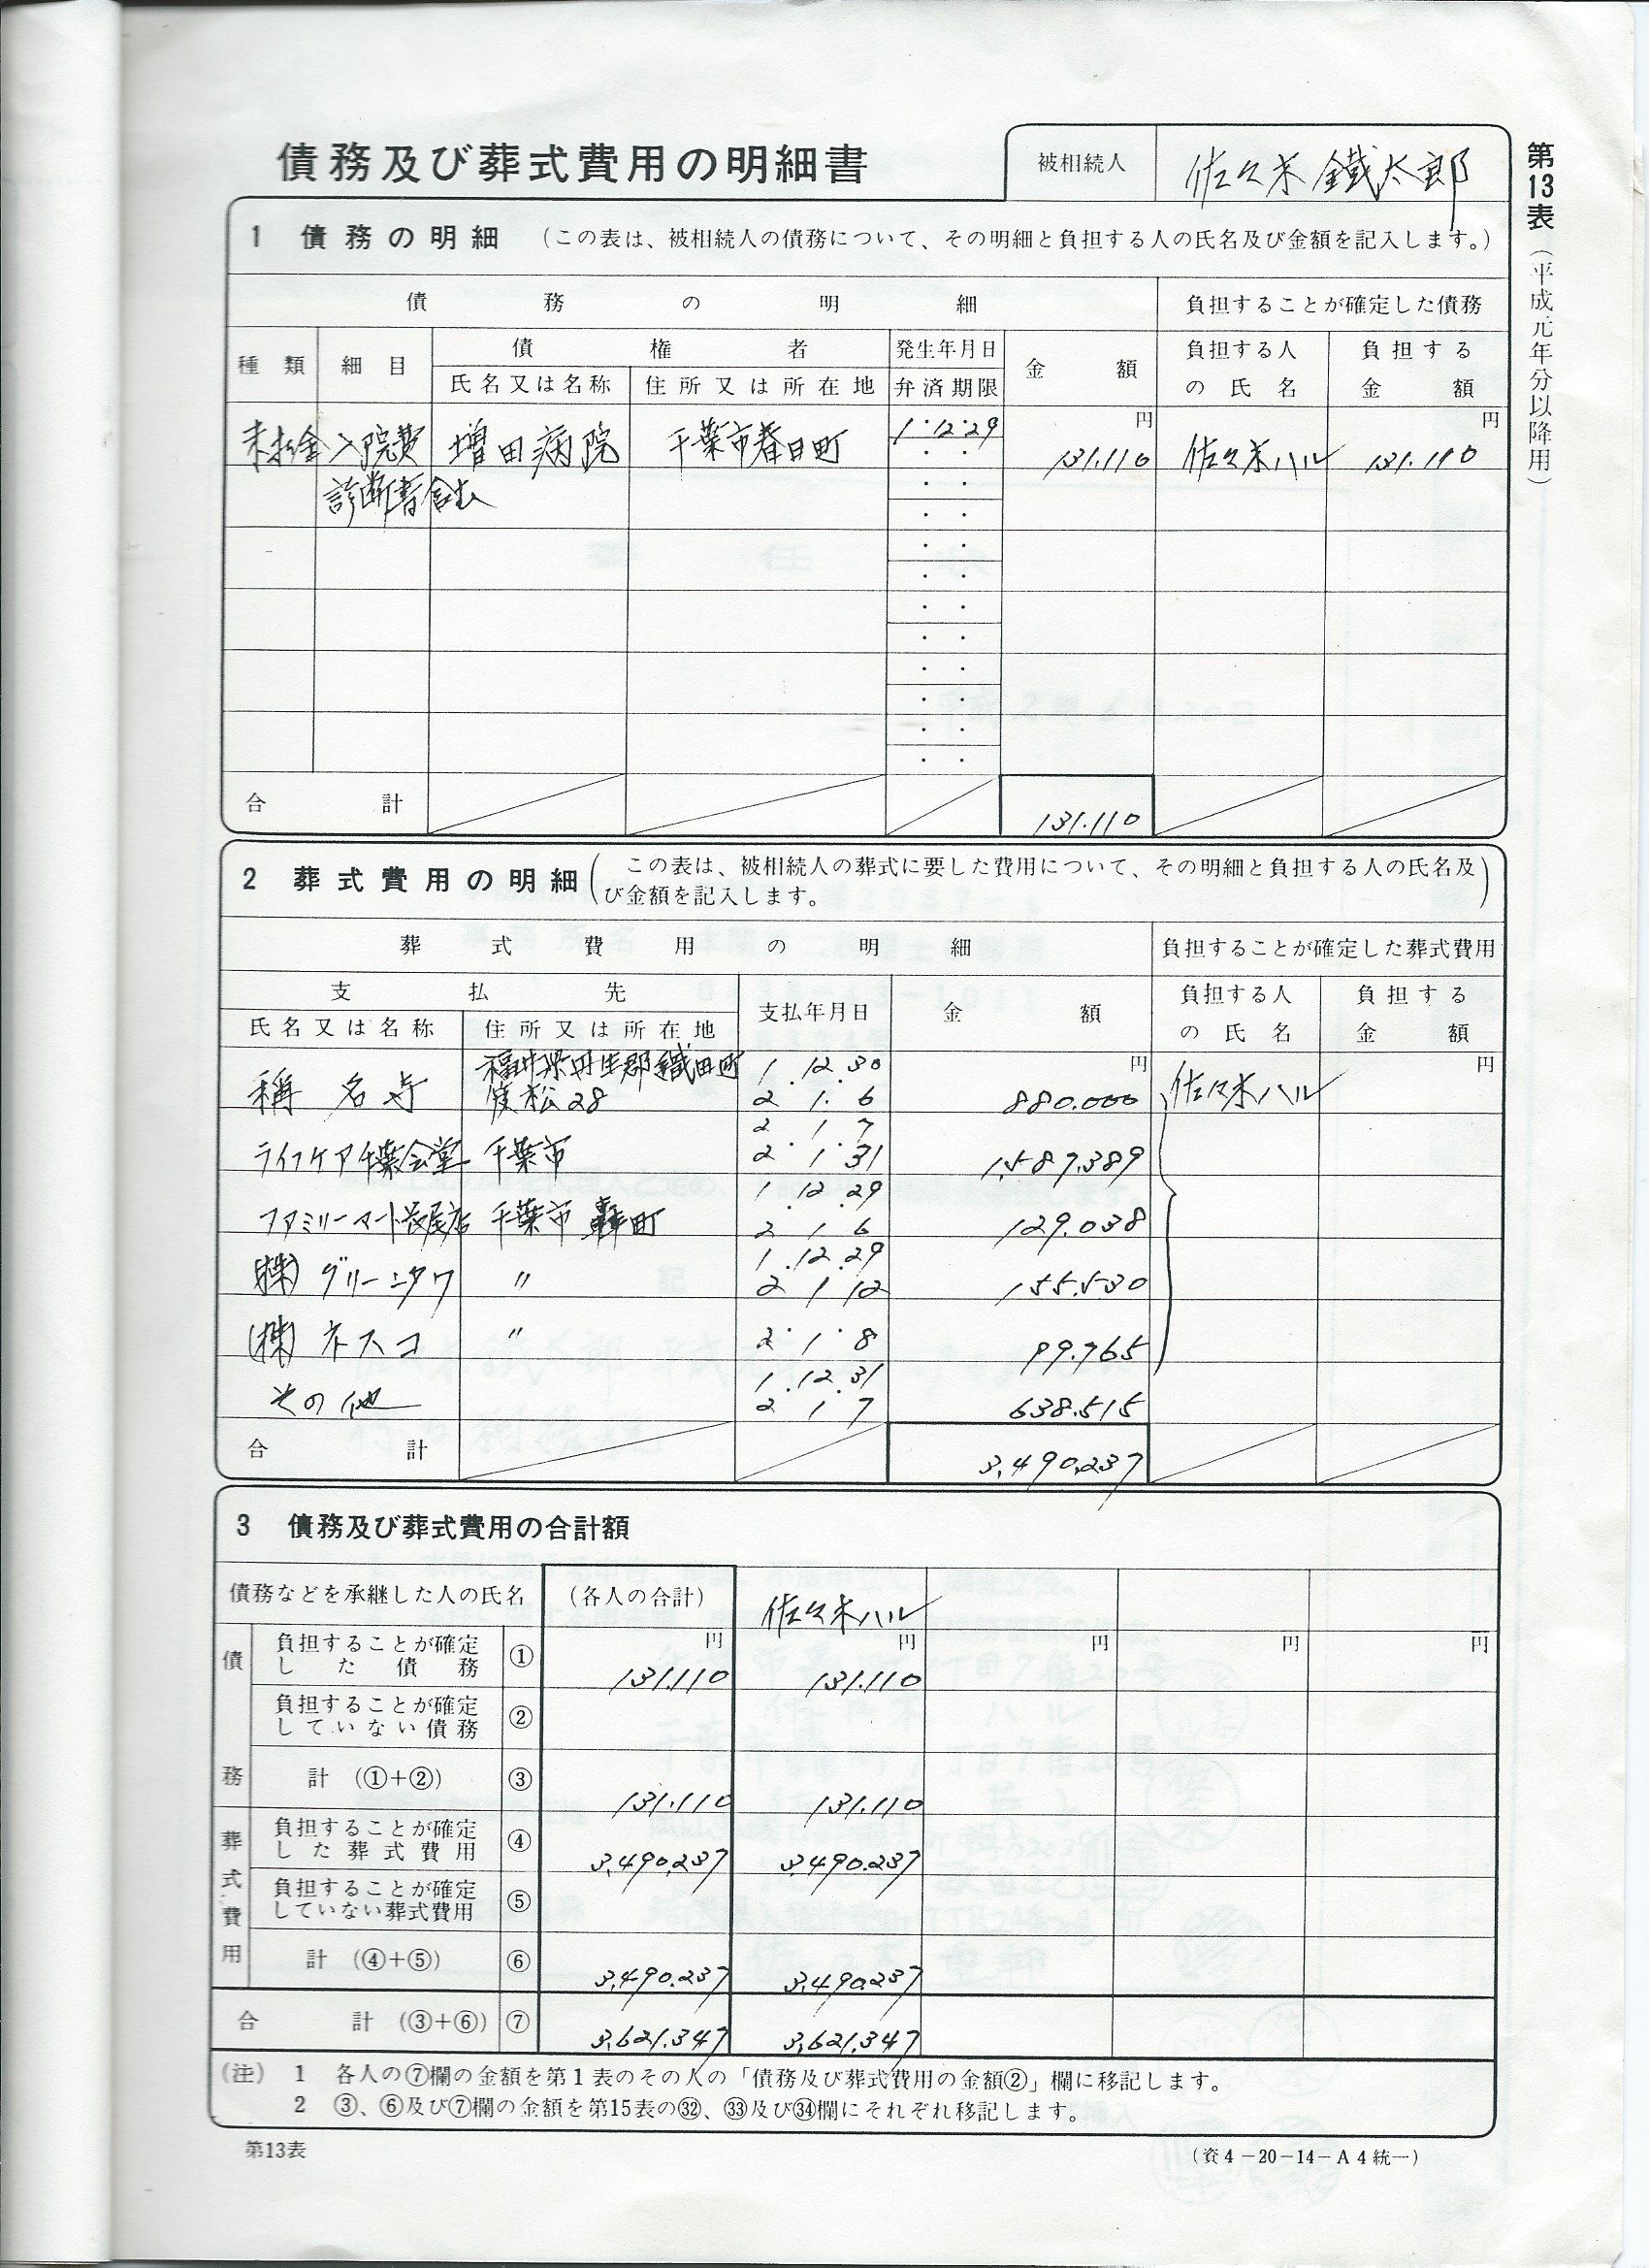 債務及び葬式費用の明細書
被相続人 佐々木 鐵太郎
第13表(平成元年分以降用)
1 債務の明細 (この表は、被相続人の債務について、その明細と負担する人の氏名及び金額を記入します。)
債務の明細 負担することが確定した債務
種類 細目 債権者 発生年月日 金額 負担する人 負担する
氏名又は名称 住所又は所在地 弁済期限 の氏名 金額
円 円
未払金 入院費 増田病院 千葉市春日町 1・12・29 131.110 佐々木ハル 131.110
診断書含む
合計 131.110
2 葬式費用の明細(この表は、被相続人の葬式に要した費用について、その明細と負担する人の氏名及
び金額を記入します。)
葬式費用の明細 負担することが確定した葬式費用
支払先 支払年月日 金額 負担する人 負担する
氏名又は名称 住所又は所在地 の氏名 金額
福井県丹生郡織田町 1.12.30 円 円
稱名寺 28 2 1.6 880.000 佐々木ハル
2・1・7
ライフケア千葉会堂 千葉市 2 1 31 1,587,389
1 12 29
ファミリーマート店 千葉市 轟町 2 1 6 129.038
1.12.29
(株)グリーンタワ 〃 2 1 12 155.530
(株)ネスコ 〃 2・1・8 99.765
1.12.31
その他 2 1 7 638.515
合計 3,490,237
3 債務及び葬式費用の合計額
債務などを承継した人の氏名 (各人の合計) 佐々木ハル
円 円 円 円 円
債務
負担することが確定
した債務 ① 131.110 131.110
負担することが確定
していない債務 ②
計 (①+②) ③ 131.110 131.110
葬式費用
負担することが確定
した葬式費用 ④ 3,490,237 3,490.237
負担することが確定
していない葬式費用 ⑤
計 (④+⑤) ⑥ 3,490.237 3,490237
合計 (③+⑥) ⑦ 3,621,347 3,621,347
(注) 1 各人の⑦欄の金額を第1表のその人の「債務及び葬式費用の金額②」欄に移記します。
2 ③、⑥及び⑦欄の金額を第15表の㉜、㉝及び㉞欄にそれぞれ移記します。
第13表 (資4-20-14-A4統一)